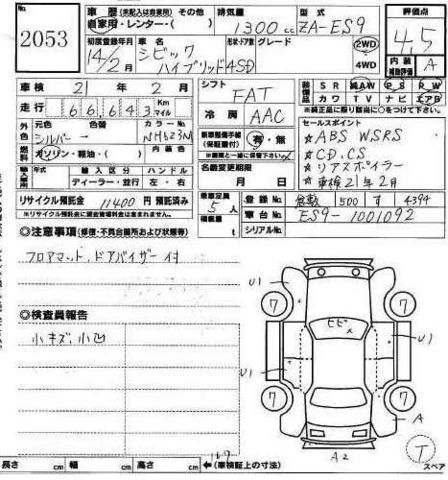 車 歴 (未記入は自家用) その他 排気量 型式 評価点
2053 自家用・レンター・( ) 1300cc ZA-ES9 4.5
初度登録年月 車名 形状ドア数 グレード
14/2月 シビック ハイブリッド 4SD 2WD 4WD
内装 補助評価 A
車検 21年 2月 シフト FAT
装備品 SR AW PS PW カワ TV ナビ エアB
走行 66643 Km マイル 冷房 AAC
※純正品に限り該当に○をつけて下さい
外色 元色 色替 カラーNo.
シルバー NH623M
新車整備手帳 (保証書付) 有・無
※書類と一緒に保管下さい
セールスポイント
☆ABS WSRS
☆CD.CS
☆リアスポイラー
☆車検21年2月
燃料 ガソリン・軽油・( ) 内装色
輸入車 年式 輸入区分 ハンドル
ディーラー・並行 左・右
名義変更期限 月 日
リサイクル預託金 11400 円 預託済み
※リサイクル預託金に資金管理料金は含まれません。
乗車定員 5人
積載量 t
登録No. 倉敷 500 す 4394
車台No. ES9-1001092
シリアルNo.
◎注意事項(修復・不具合箇所および状態等)
フロアマット、ドアバイザー付
◎検査員報告
小キズ、小凹
U1
7 7
ヒビ
U1 U1
7 7
A
A2
T スペア
長さ cm 幅 cm 高さ cm ←(車検証上の寸法)